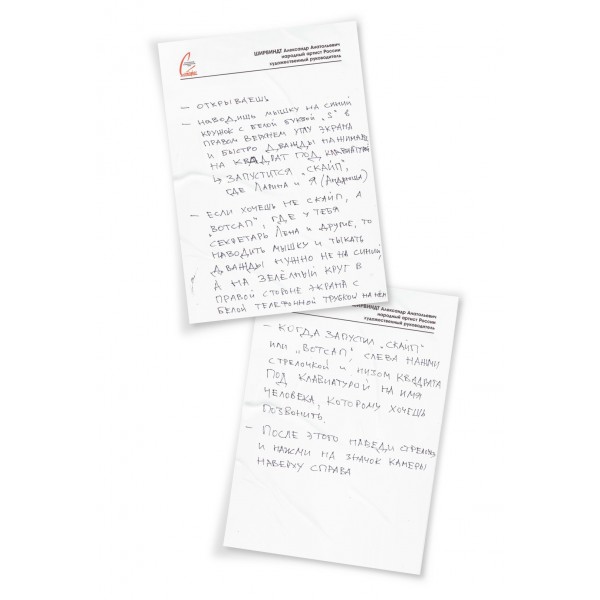 ШИРВИНДТ Александр Анатольевич
народный артист России
художественный руководитель
– ОТКРЫВАЕШЬ
– НАВОДИШЬ МЫШКУ НА СИНИЙ
КРУЖОК С БЕЛОЙ БУКВОЙ „S" В
ПРАВОМ ВЕРХНЕМ УГЛУ ЭКРАНА
И БЫСТРО ДВАЖДЫ НАЖИМАЕШЬ
НА КВАДРАТ ПОД КЛАВИАТУРОЙ
↳ ЗАПУСТИТСЯ „СКАЙП",
ГДЕ ЛАРИНА И Я (АНДРЮША)
– ЕСЛИ ХОЧЕШЬ НЕ СКАЙП, А
„ВОТСАП", ГДЕ У ТЕБЯ
„СЕКРЕТАРЬ ЛЕНА И ДРУГИЕ, ТО
НАВОДИТЬ МЫШКУ И ТЫКАТЬ
ДВАЖДЫ НУЖНО НЕ НА СИНИЙ,
А НА ЗЕЛЁНЫЙ КРУГ В
ПРАВОЙ СТОРОНЕ ЭКРАНА С
БЕЛОЙ ТЕЛЕФОННОЙ ТРУБКОЙ НА НЁМ
ШИРВИНДТ Александр Анатольевич
народный артист России
художественный руководитель
– КОГДА ЗАПУСТИЛ „СКАЙП"
ИЛИ „ВОТСАП", СЛЕВА НАЖМИ
СТРЕЛОЧКОЙ И НИЗОМ КВАДРАТА
ПОД КЛАВИАТУРОЙ НА ИМЯ
ЧЕЛОВЕКА, КОТОРОМУ ХОЧЕШЬ
ПОЗВОНИТЬ.
– ПОСЛЕ ЭТОГО НАВЕДИ СТРЕЛОЧКУ
И НАЖМИ НА ЗНАЧОК КАМЕРЫ
НАВЕРХУ СПРАВА